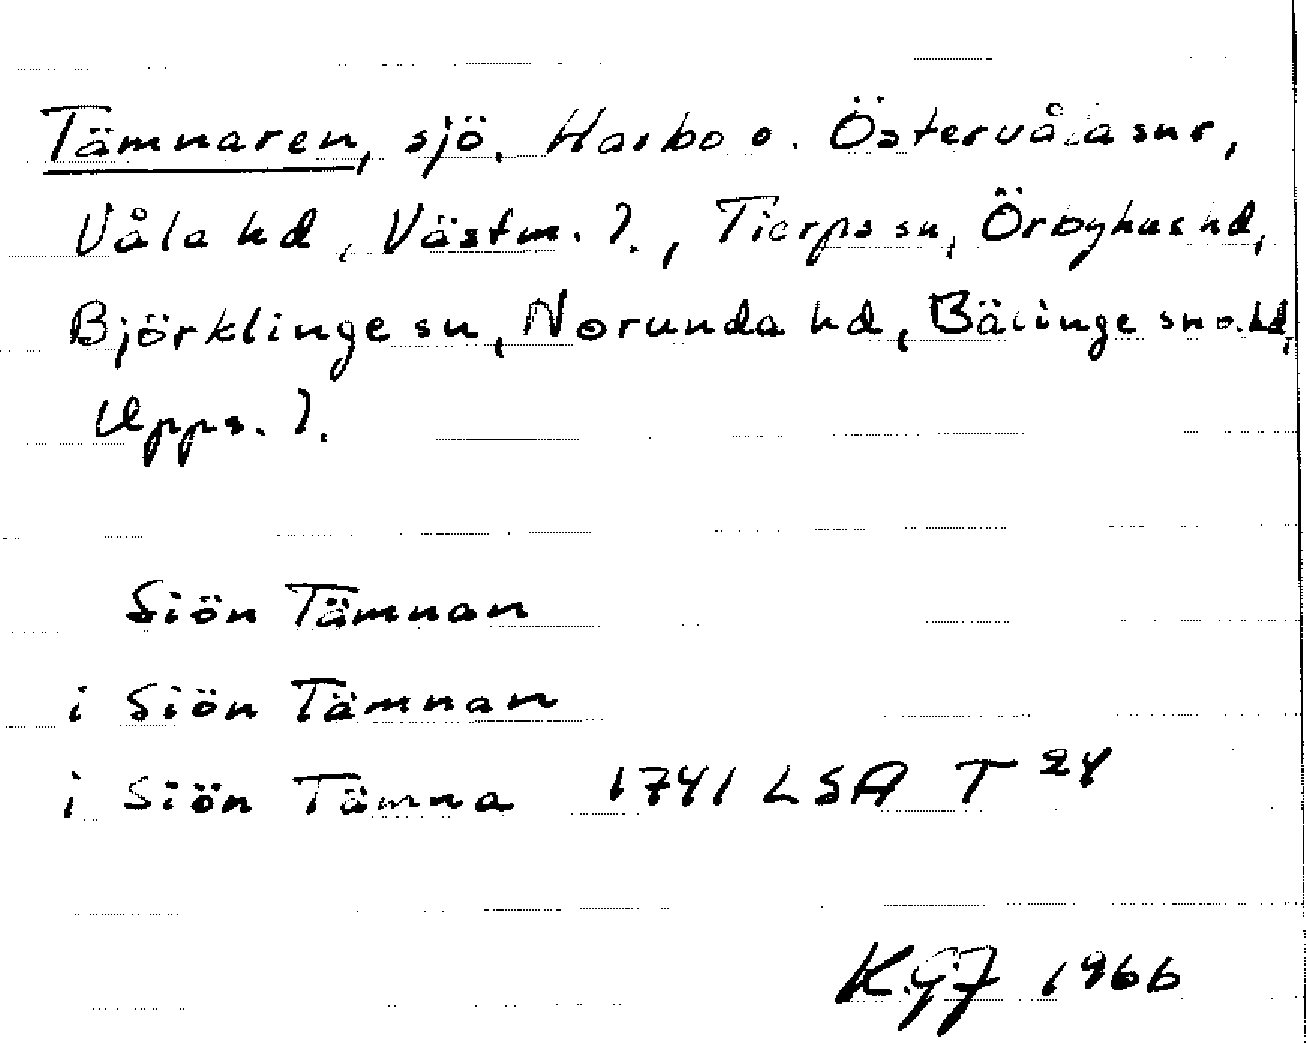 Tämnaren, sjö, Harbo o. Östervåla snr,
Våla hd, Västm. l., Tierps sn, Örbyhus hd,
Björklinge sn, Norunda hd, Bälinge sn o. hd,
Upps. l.
Siön Tämnan
i Siön Tämnan
i Siön Tämna 1741 LSA T 24
KGJ 1966